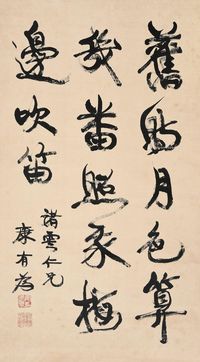 舊時月色算
幾番照我梅
邊吹笛
諸雲仁兄
康有為